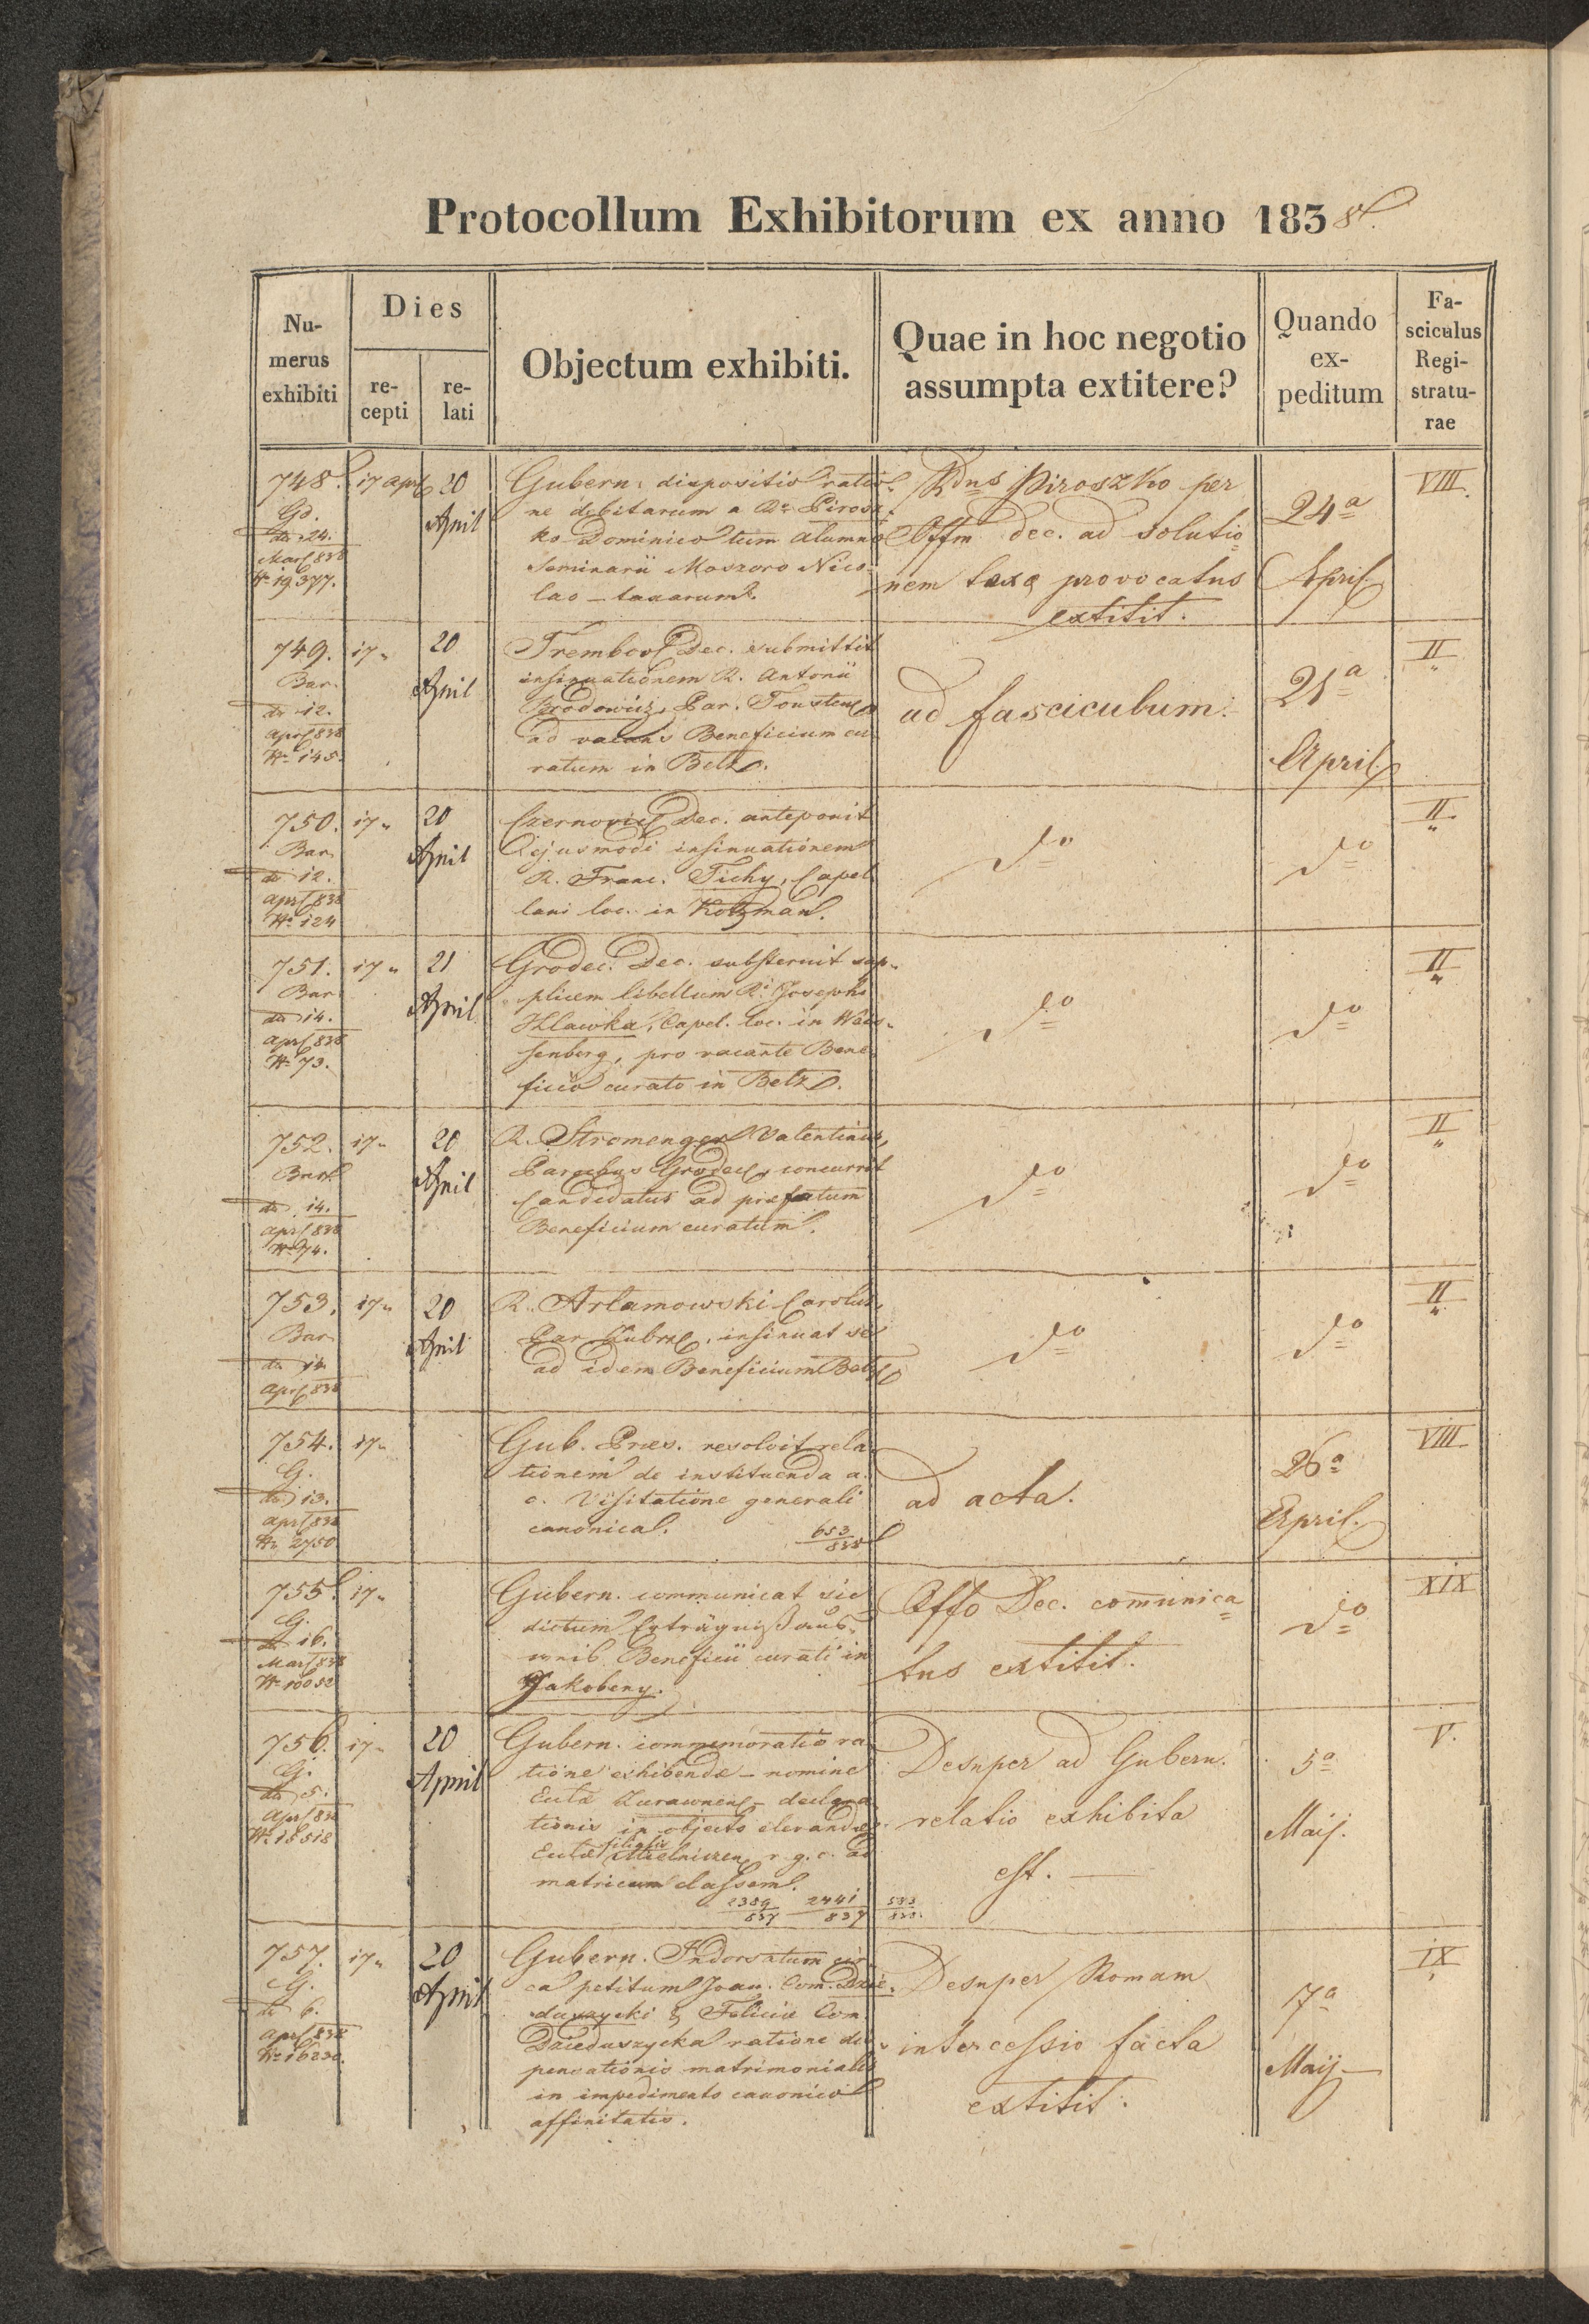 Protocollum Exhibitorum ex anno 1838.
Nu-
merus
exhibiti
Dies
re-
cepti
re-
lati
Objectum exhibiti.
Quae in hoc negotio
assumpta extitere?
Quando
ex-
peditum
Fa-
sciculus
Regi-
stratu-
rae
748. 17 apr 20 April
Gd.
do 24.
Mar 838
No 19377.
Gubern. dispositio ratio-
ne debitarum a Rdo Pirosz-
ko Dominico tum Alumno
Seminarii Moszoro Nico-
lao - taxarum.
Rdns Piroszko per
Offm dec. ad solutio
nem taxae provocatus
extitit.
24a
April
VIII.
749. 17 „ 20 April
Bar.
do 12.
apr 838
No 145.
Trembov Dec. submittit
insinuationem R. Antonii
Brodowicz, Par. Tousten
ad vacans Beneficium cu
ratum in Belz.
ad fasciculum.
21a
April
II
750. 17 „ 20 April
Bar.
do 12.
apr 838
No 124
Czernovic Dec. anteponit
ejusmodi insinuationem
R. Franc. Tichy, Capel
lani loc. in Kotzman.
do
do
II
751. 17 „ 21 April
Bar
do 14.
apr 838
No 73.
Grodec. Dec. substernit sup-
plicem libellum R. Josephi
Hlawka, Capel. loc. in Weis-
senberg, pro vacante Bene
ficio curato in Belz.
do
do
II
752. 17 „ 20 April
do 14.
apr 838
No 74.
R. Stromenger Valentinus,
Parochus Grodec, concurrit
Candidatus ad praefatum
Beneficium curatum.
do
do
II
753. 17 „ 20 April
Bar.
do 14
apr 838
R. Artamowski Carolus,
Par. Zubrz, insinuat se
ad idem Beneficium Belz
do
do
II
754. 17 „
G.
do 13.
apr 838
No 2750
Gub. Praes. resolvit rela
tionem de instituenda a.
c. Visitatione generali
canonical.
653
838
ad acta.
26a
April.
VIII
755. 17 „
G.
do 16.
Mar 838
No 10052
Gubern. communicat sic
dictum Erträgnißaus-
weis Beneficii curati in
Jakobeny.
Offo Dec. comunica
tus extitit.
do
XIX
756. 17 „ 20 April
G.
do 5.
apr 838
No 18518
Gubern. commemoratio ra
tione exhibendae - nomine
Eccla Zurawnens - declara
tionis in objecto elevandae
filialis
Eccla Mielniczen r. g. c. ad
matricum classem.
2389
837
2441
837
533
838.
Desuper ad Gubern.
relatio exhibita
est.
5a
Maij.
V.
757. 17 „ 20 April
G.
do 6.
apr 838
No 16230.
Gubern. Indorsatum cir
ca petitum Joan. Com. Dzie-
duszycki & Felicia Com.
Dzieduszycka ratione dis
pensationis matrimonialis
in impedimento canonico
affinitatis.
Desuper Romam
intercessio facta
extitit.
17a
Maij
IX